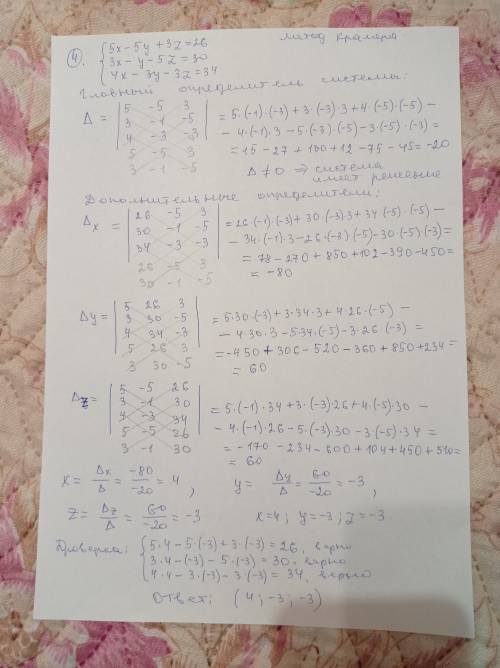 4.
5x-5y+3z=26
3x-y-5z=30
4x-3y-3z=34
метод крамера
Главный определитель системы:
Δ = | 5 -5 3 | = 5·(-1)·(-3)+3·(-3)·3+4·(-5)·(-5)-
3 -1 -5
4 -3 -3 -4·(-1)·3-5·(-3)·(-5)-3·(-5)·(-3)=
5 -5 3 =15-27+100+12-75-45=-20
3 -1 -5
Δ≠0 ⇒ система
имеет решение
Дополнительные определители:
Δx = | 26 -5 3 | =26·(-1)·(-3)+30·(-3)·3+34·(-5)·(-5)-
30 -1 -5
34 -3 -3 -34·(-1)·3-26·(-3)·(-5)-30·(-5)·(-3)=
26 -5 3 =78-270+850+102-390-450=
30 -1 -5 =-80
Δy= | 5 26 3 | =5·30·(-3)+3·34·3+4·26·(-5)-
3 30 -5
4 34 -3 -4·30·3-5·34·(-5)-3·26·(-3)=
5 26 3 =-450+306-520-360+850+234=
3 30 -5 =60
Δz= | 5 -5 26 |
3 -1 30 =5·(-1)·34+3·(-3)·26+4·(-5)·30-
4 -3 34 -4·(-1)·26-5·(-3)·30-3·(-5)·34=
5 -5 26 =-170-234-600+104+450+510=
3 -1 30 =60
x= Δx/Δ = -80/-20 = 4, y= Δy/Δ = 60/-20 = -3,
z= Δz/Δ = 60/-20 = -3 x=4; y=-3; z=-3
Проверка: 5·4-5·(-3)+3·(-3)=26, верно
3·4-(-3)-5·(-3)=30, верно
4·4-3·(-3)-3·(-3)=34, верно
Ответ: (4;-3;-3)